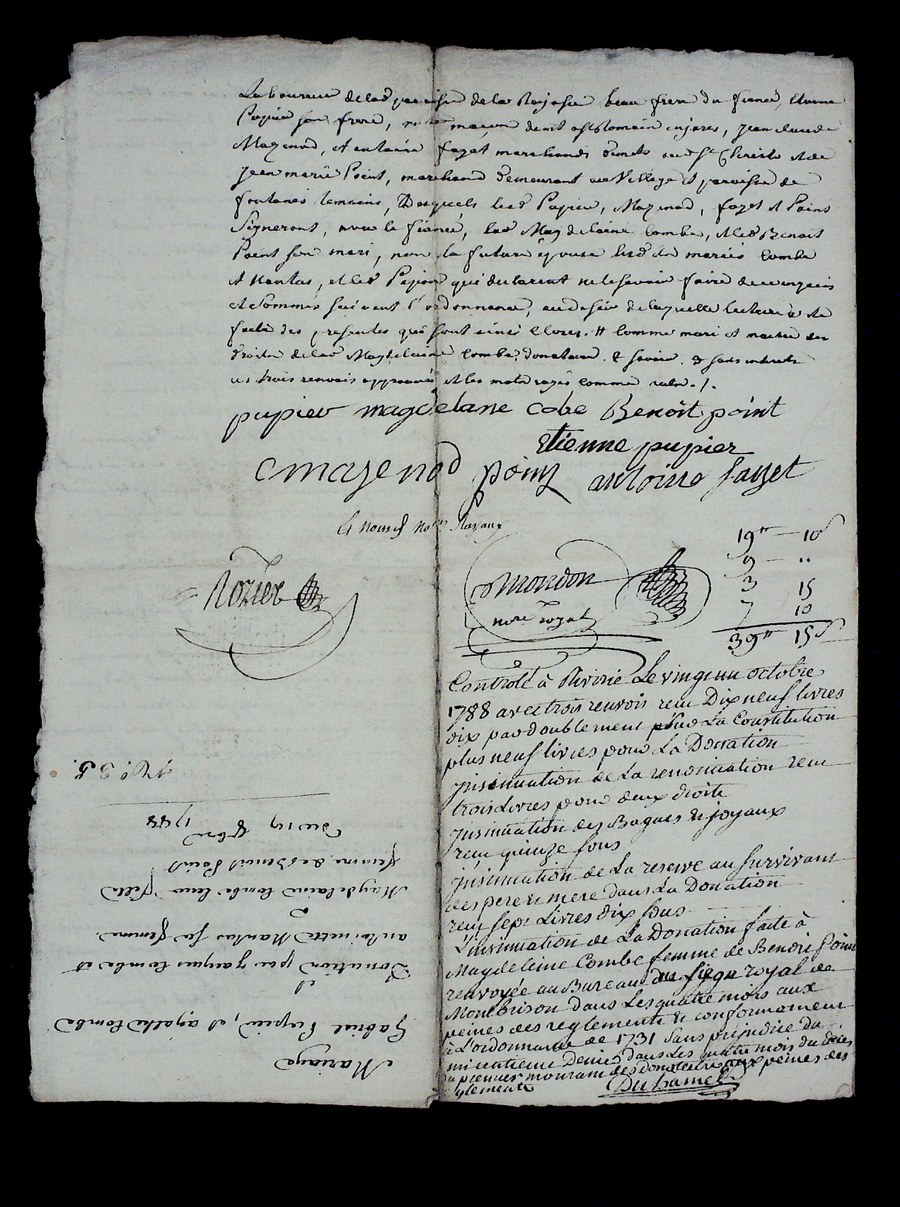 Laboureur de lad. paroisse de la Rajasse beau frere du fiancé, Etienne
Pupier son frere, maçon dem. à St Romain en jares, Jean Claude
Mazenod, et antoine fayet marchands dem. aud. St Christo et de
Jean marie Point, marchand demeurant au Village et paroisse de
fontanes temoins, Desquels lesd. Pupier, Mazenod, fayet et Point
Signeront, avec le fiancé, lad. Magdelaine Combe, et led. Benoit
Point son mari, non la future epouse lesd. mariés Combe
et Nantas, et led. qui declarent ne le savoir faire de ce enquis
et Sommés suivant l'ordonnance, au desir de laquelle lecture a été
faite des presentes qui sont ainsi # Comme mari et maitre des
droits de lad. Magdelaine Combe donataire. & savoir. & sans
ces trois renvois approuvés et les mots rayés comme nuls ./.
pupier magdelane cobe Benoît point
Etienne pupier
C mazenod point antoine fayet
Nozier
Mondon
nore royal
19tt — 10s
9 — "
3 15
7 10
39tt 15s
Controlé à Riviríe Le vingt un octobre
1788 avec trois renvois recu Dix neuf livres
dix par doublement pour La Constitution
plus neuf livres pour La Donation
jnsinuation de La renonciation recu
trois Livres pour deux droits
jnsinuation des Bagues & joyaux
recu quinze sous
jnsinuation de La reserve au Survivant
des pere & mere dans La Donation
recu sept Livres dix sous
L'insinuation de La Donation faite à
Magdeleine Combe femme de Benoit point
renvoyée au Bureau du siege royal de
Montbrison dans Les quatre mois aux
peines des reglements & conformement
à L'ordonnance de 1731 Sans prejudice du
centieme Denier dans Les quatre mois du décès
du premier mourant des donateurs aux peines des
reglements DuHamel
Mariage
Gabriel Pupier, et agathe Combe
et
Donation par jacques Combe et
antoinette Nantas sa femme
a
Magdelaine Combe leur fille
femme de Benoit Point
Du 19 8bre 1788
N.o 35.